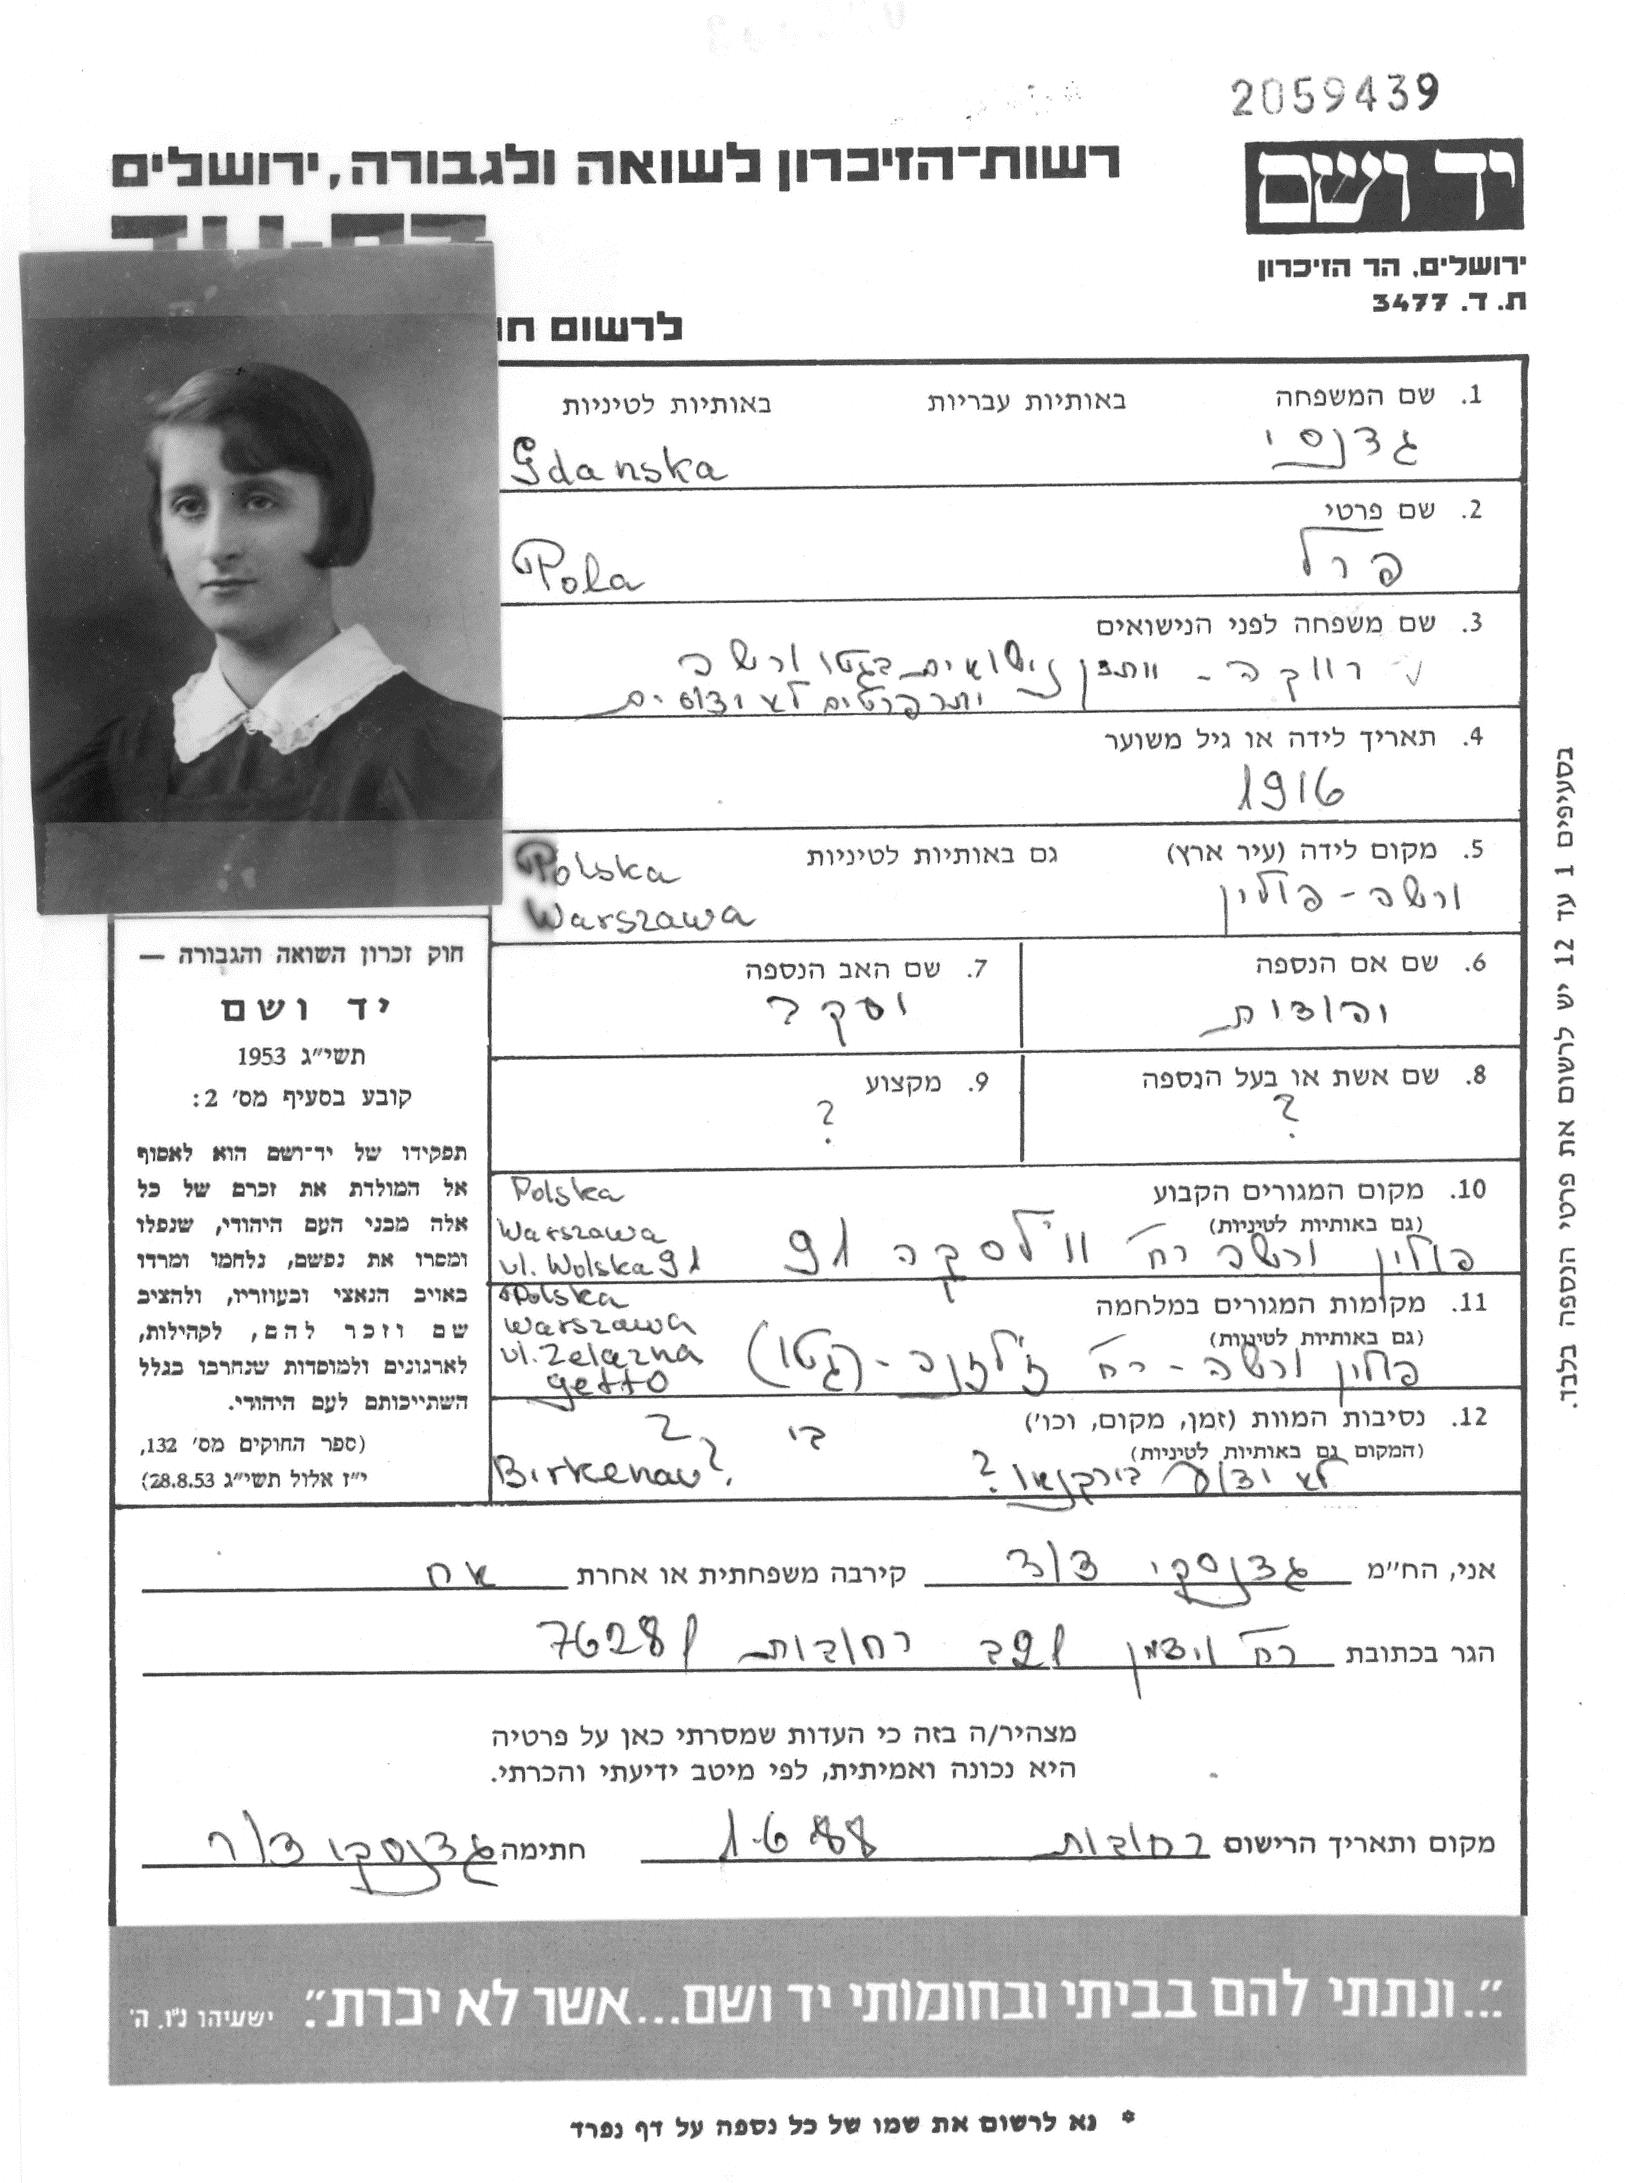 2059439
רשות־הזיכרון לשואה ולגבורה, ירושלים
יד ושם
דף-עד
ירושלים, הר הזיכרון
ת. ד. 3477
לרשום חו
1. שם המשפחה באותיות עבריות באותיות לטיניות
Gdanska
2. שם פרטי
פרל
Pola
3. שם משפחה לפני הנישואים
רווקה - יתכן נישואים בגטו ורשה
יתר פרטים לא ידועים
4. תאריך לידה או גיל משוער
1916
5. מקום לידה (עיר ארץ) גם באותיות לטיניות
ורשה - פולין
Polska
Warszawa
6. שם אם הנספה
יהודית
7. שם האב הנספה
יעקב
8. שם אשת או בעל הנספה
?
9. מקצוע
?
10. מקום המגורים הקבוע
(גם באותיות לטיניות)
פולין ורשה רח' וולסקה 91
Polska
Warszawa
ul. Wolska 91
11. מקומות המגורים במלחמה
(גם באותיות לטיניות)
פולין ורשה - רח' ז'לזנה - (גטו)
Polska
Warszawa
ul. Zelazna
getto
12. נסיבות המוות (זמן, מקום, וכו')
(המקום גם באותיות לטיניות)
לא ידוע בירקנאו ?
?
Birkenau ?
בסעיפים 1 עד 12 יש לרשום את פרטי הנספה בלבד.
חוק זכרון השואה והגבורה —
יד ושם
תשי״ג 1953
קובע בסעיף מס׳ 2:
תפקידו של יד־ושם הוא לאסוף
אל המולדת את זכרם של כל
אלה מבני העם היהודי, שנפלו
ומסרו את נפשם, נלחמו ומרדו
באויב הנאצי ובעוזריו, ולהציב
שם וזכר להם, לקהילות,
לארגונים ולמוסדות שנחרבו בגלל
השתייכותם לעם היהודי.
(ספר החוקים מס׳ 132,
י״ז אלול תשי״ג 28.8.53)
אני, הח״מ גדנסקי דוד קירבה משפחתית או אחרת אח
הגר בכתובת רח' ויצמן 19ב רחובות 76281
מצהיר/ה בזה כי העדות שמסרתי כאן על פרטיה
היא נכונה ואמיתית, לפי מיטב ידיעתי והכרתי.
מקום ותאריך הרישום רחובות 1.6.88 חתימה גדנסקי דוד
״...ונתתי להם בביתי ובחומותי יד ושם...אשר לא יכרת״. ישעיהו נ״ו, ה׳
* נא לרשום את שמו של כל נספה על דף נפרד